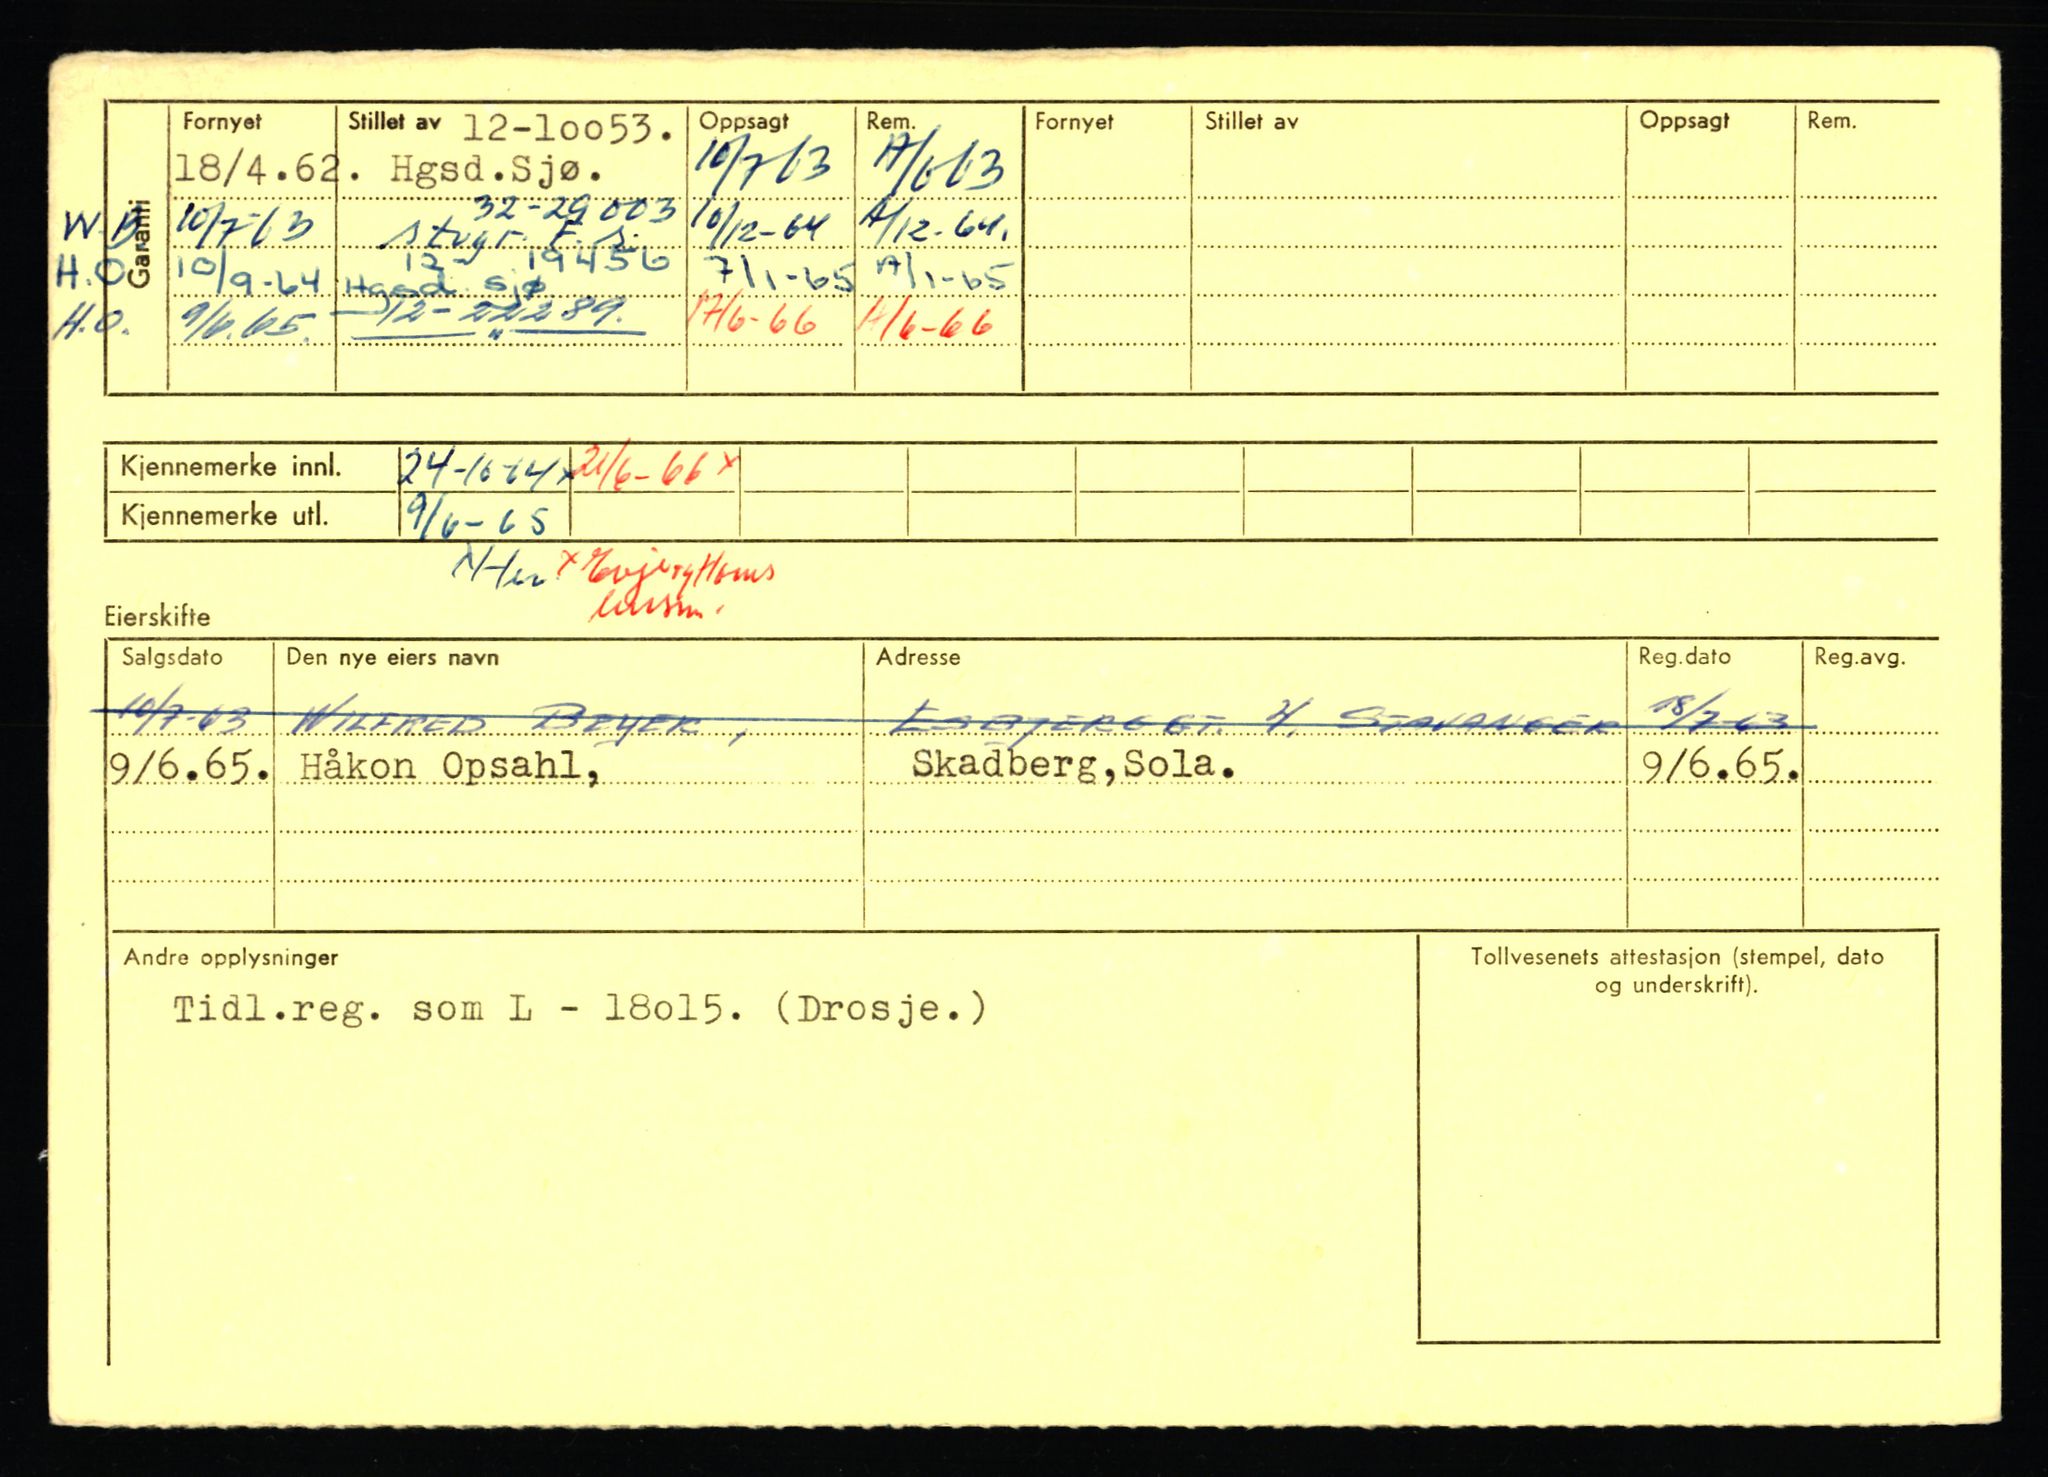 Garanti
Fornyet Stillet av 12-10053. Oppsagt Rem. Fornyet Stillet av Oppsagt Rem.
18/4.62. Hgsd.Sjø. 10/7-63 A/6-63
32-29003
W.B 10/7-63 Stvgr. F.s. 10/12-64 A/12-64.
12- 19456
H.O 10/9-64 Hgsd. Sjø 7/1-65 A/1-65
H.O. 9/6.65. 12-22289. 17/6-66 A/6-66
"
Kjennemerke innl. 24-10-64 x 21/6-66 x
Kjennemerke utl. 9/6-65
Eierskifte
Salgsdato Den nye eiers navn Adresse Reg.dato Reg.avg.
10/7-63 WILFRED BEYER, ESBJERGGT. STAVANGER 18/7-63
9/6.65. Håkon Opsahl, Skadberg,Sola. 9/6.65.
Andre opplysninger
Tidl.reg. som L - 18o15. (Drosje.)
Tollvesenets attestasjon (stempel, dato
og underskrift).